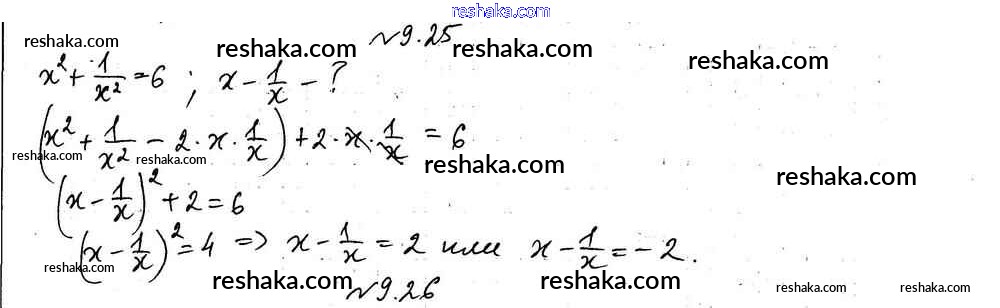 reshaka.com
№9.25
reshaka.com reshaka.com reshaka.com
x² + 1/x² = 6 ; x - 1/x - ?
(x² + 1/x² - 2·x·1/x) + 2·x·1/x = 6
reshaka.com reshaka.com reshaka.com reshaka.com
(x - 1/x)² + 2 = 6
(x - 1/x)² = 4 => x - 1/x = 2 или x - 1/x = -2.
reshaka.com reshaka.com reshaka.com reshaka.com reshaka.com
№9.26